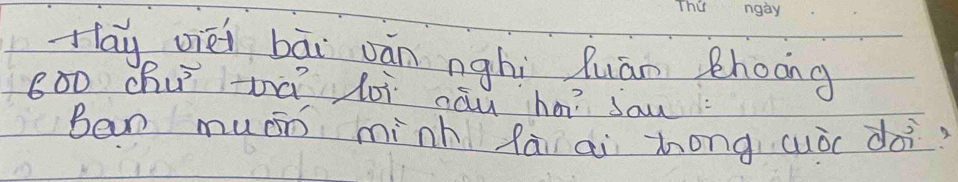 Thứ ngày
Hãy viết bài văn nghị luận khoảng
600 chữ trả lời câu hỏi sau :
Bạn muốn mình là ai trong cuộc đời?